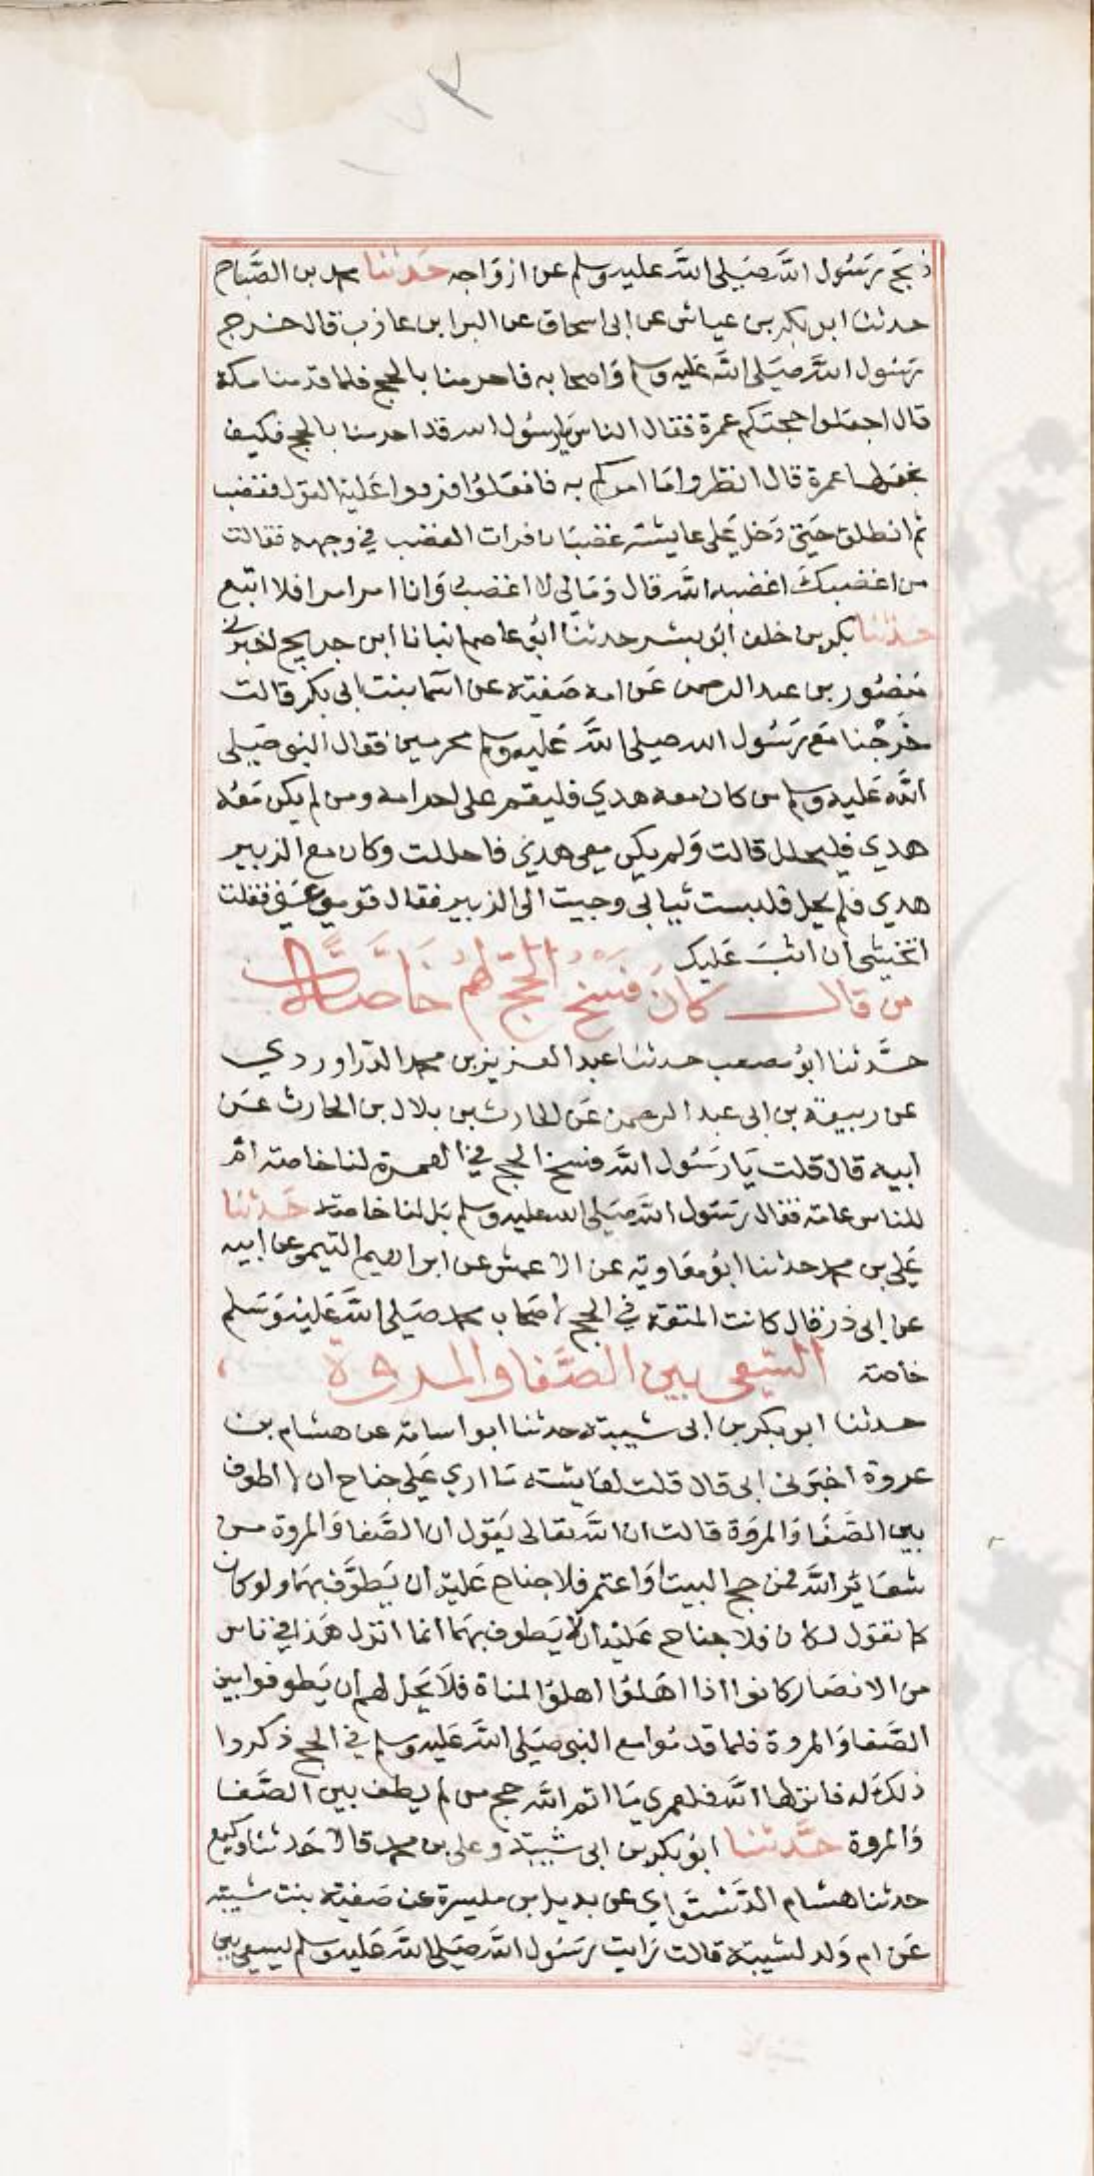 ذبح رسول الله صلى الله عليه وسلم عن ازواجه حدثنا محمد بن الصباح
حدثنا ابو بكر بن عياش عن ابى اسحاق عن البرا بن عازب قال خرج
رسول الله صلى الله عليه وسلم واصحابه فاحرمنا بالحج فلما قدمنا مكة
قال اجعلوا حجتكم عمرة فقال الناس يا رسول الله قد احرمنا بالحج فكيف
نجعلها عمرة قال انظروا ما امركم به فافعلوا فردوا عليه القول فغضب
ثم انطلق حتى دخل على عايشة غضبانا فرات الغضب في وجهه فقالت
من اغضبك اغضبه الله قال وما لى لا اغضب وانا امر امرا فلا اتبع
حدثنا بكر بن خلف ابو بشر حدثنا ابو عاصم انبانا ابن جريج اخبرني
منصور بن عبد الرحمن عن امه صفية عن اسما بنت ابى بكر قالت
خرجنا مع رسول الله صلى الله عليه وسلم محرمين فقال النبي صلى
الله عليه وسلم من كان معه هدي فليقم على احرامه ومن لم يكن معه
هدي فليحلل قالت ولم يكن معى هدي فاحللت وكان مع الزبير
هدي فلم يحل فلبست ثيابى وجيت الى الزبير فقال قومى عنى فقلت
اتخشى ان اثب عليك
من قال كان فسخ الحج لهم خاصة
حدثنا ابو مصعب حدثنا عبد العزيز بن محمد الدراوردي
عن ربيعة بن ابى عبد الرحمن عن الحارث بن بلال بن الحارث عن
ابيه قال قلت يا رسول الله فسخ الحج في العمرة لنا خاصة ام
للناس عامة فقال رسول الله صلى الله عليه وسلم بل لنا خاصة حدثنا
على بن محمد حدثنا ابو معاوية عن الاعمش عن ابراهيم التيمى عن ابيه
عن ابى ذر قال كانت المتعة في الحج لاصحاب محمد صلى الله عليه وسلم
خاصة السعى بين الصفا والمروة
حدثنا ابو بكر بن ابى شيبة حدثنا ابو اسامة عن هشام بن
عروة اخبرنى ابى قال قلت لعايشة ما اري على جناح ان لا اطوف
بين الصفا والمروة قالت ان الله تعالى يقول ان الصفا والمروة من
شعاير الله فمن حج البيت او اعتمر فلا جناح عليه ان يطوف بهما ولو كان
كما تقول لكان فلا جناح عليه ان لا يطوف بهما انما انزل هذا في ناس
من الانصار كانوا اذا اهلوا اهلوا لمناة فلا يحل لهم ان يطوفوا بين
الصفا والمروة فلما قدموا مع النبي صلى الله عليه وسلم في الحج ذكروا
ذلك له فانزلها الله فلعمري ما اتم الله حج من لم يطف بين الصفا
والمروة حدثنا ابو بكر بن ابى شيبة وعلى بن محمد قالا حدثنا وكيع
حدثنا هشام الدستواي عن بديل بن مليسرة عن صفية بنت شيبة
عن ام ولد لشيبة قالت رايت رسول الله صلى الله عليه وسلم يسعى بين